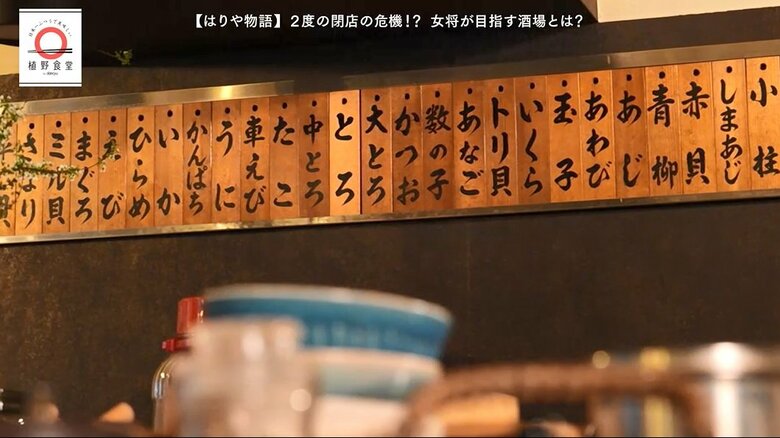 【はりや物語】2度の閉店の危機！？ 女将が目指す酒場とは？
日本一ふつうで美味しい
植野食堂
小柱
しまあじ
赤貝
青柳
あじ
あわび
玉子
いくら
トリ貝
あなご
数の子
かつお
大とろ
とろ
中とろ
たこ
車えび
うに
かんぱち
いか
ひらめ
えび
まぐろ
ミル貝
さより